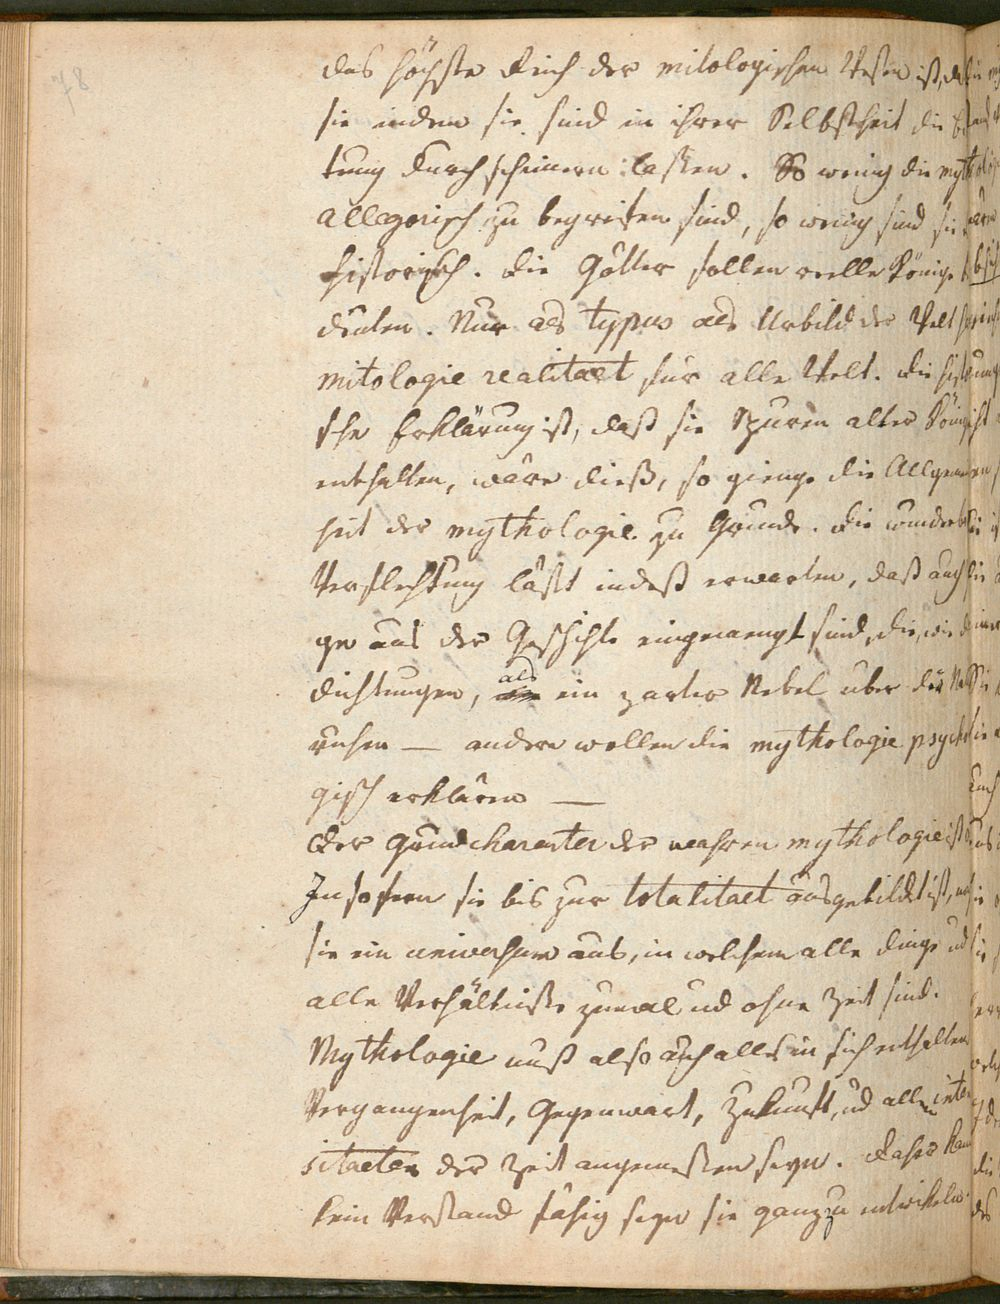 78
das höchste Reich der mitologischen Wesen ist, da
sie indem sie sind in ihrer Selbstheit die
tung durchscheinen laßen. So wenig die myth
allegorisch zu begreifen sind, so wenig sind sie
historisch. Die Götter sollen reelle Könige
deuten. Nur als typus als Urbild der Welt
mitologie realitaet für alle Welt. Die histo
sche Erklärung ist, daß sie Spuren alter König
enthalten, wäre dieß, so gienge die Allgemein
heit der mythologie zu Grunde. Die wunderba
Verflechtung läßt indeß erwarten, daß auch
ge aus der Geschichte eingemengt sind, die, wie
dichtungen, als ein zarter Nebel über der
ruhen — andere wollen die mythologie psycho
gisch erklären —
Der Grundcharacter der wahren mythologie ist
In so fern sie bis zur totalitaet ausgebildet ist,
sie ein universum aus, in welchem alle dinge ud
alle Verhältniße zumal ud ohne Zeit sind.
Mythologie muß also auch alles in sich enthalten
Vergangenheit, Gegenwart, Zukunft, ud allen inten
sitaeten der Zeit angemeßen seyn. Daher kan
kein Verstand fähig seyn sie ganz zu entwickeln